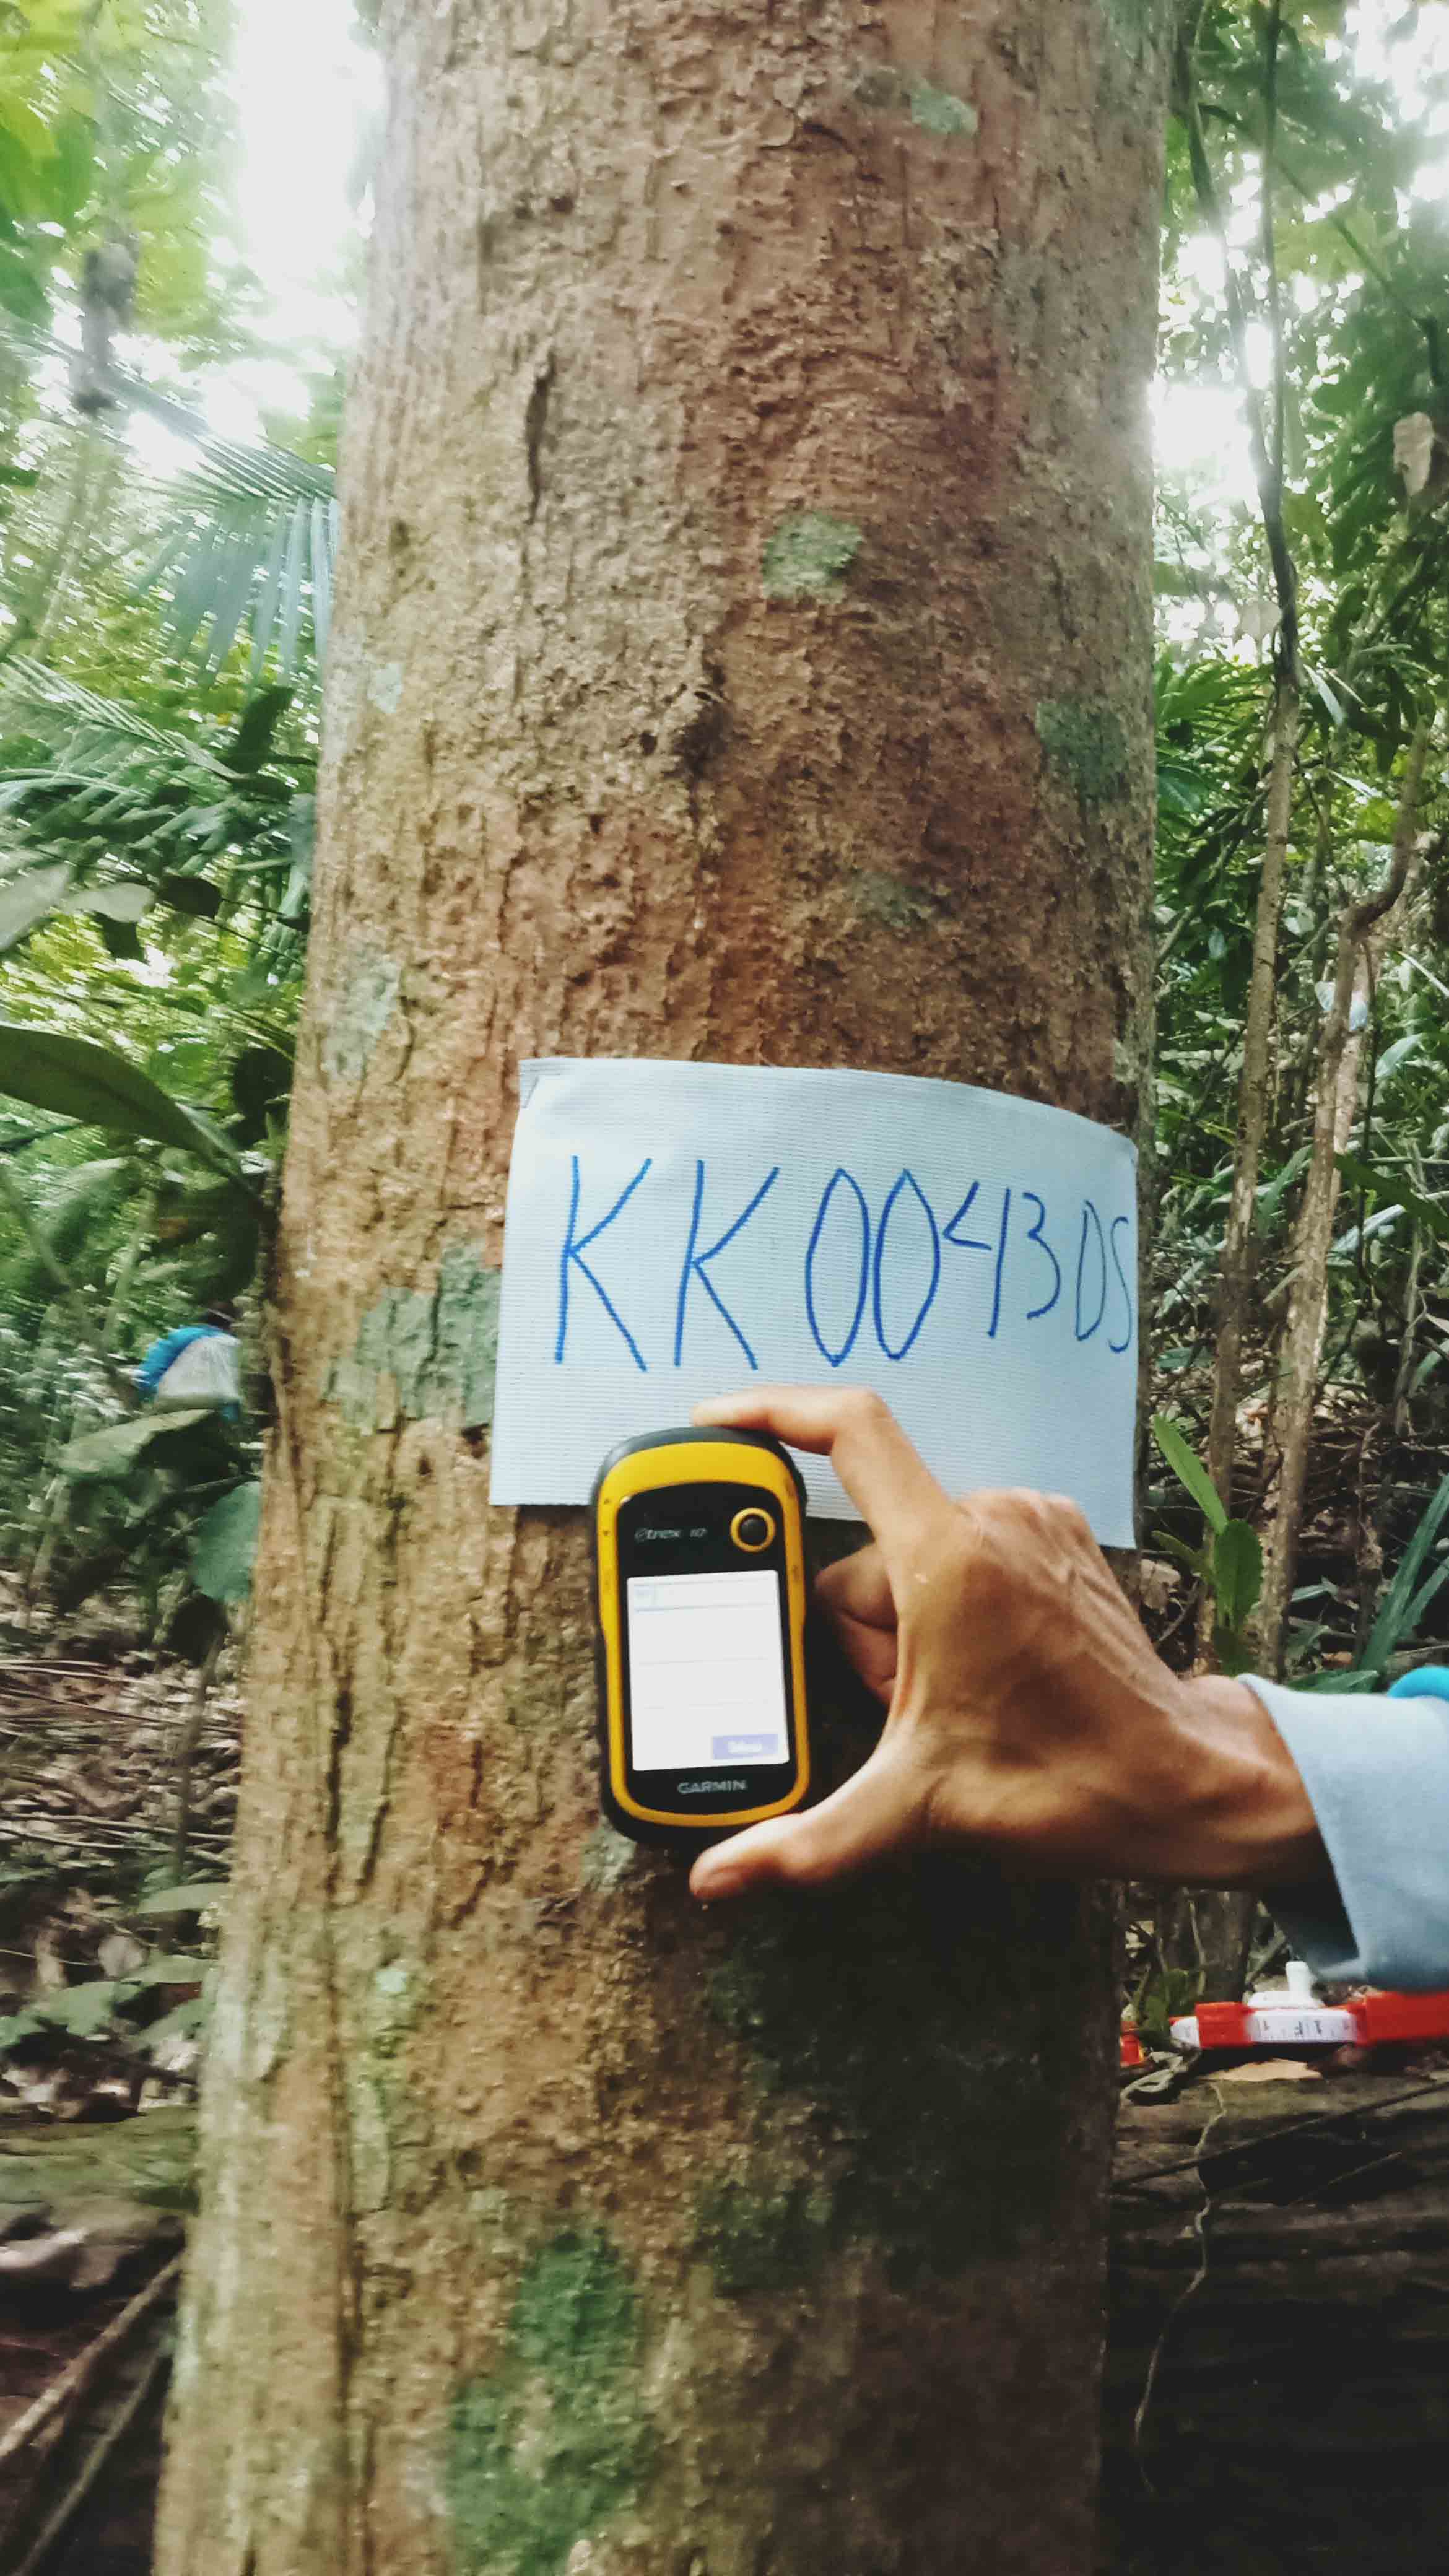 KK0043DS
eTrex 10
GARMIN